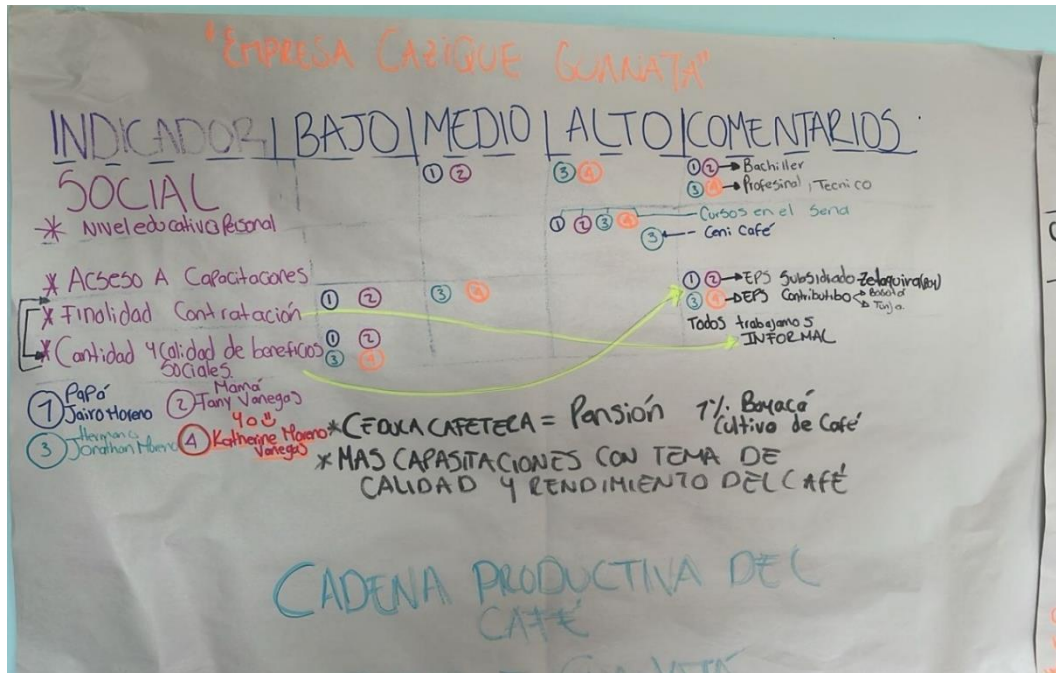 "EMPRESA CAZIQUE GUANATA"
INDICADOR | BAJO | MEDIO | ALTO | COMENTARIOS.
SOCIAL
① ② ③ ④ ① ② → Bachiller
③ ④ → Profesinal, Tecnico
* Nivel educativo Personal
① ② ③ ④ Cursos en el Sena
③ ← Ceni Café
* Acseso A Capacitacones
① ② → EPS Subsidiado Zetaquira(Boy)
* Finalidad Contratación ① ② ③ ④ ③ ④ → EPS Contributibo Bogotá
Tunja.
Todos trabajamos
INFORMAL
* Cantidad y Calidad de beneficios ① ②
Sociales. ③ ④
① Papá
Jairo Moreno
② Mamá
Tany Vanegas
③ Hermano
Jonathan Moreno
④ Yo
Katherine Moreno
Vanegas
* CEDULA CAFETERA = Pansión 1% Boyacá
Cultivo de Café
* MAS CAPASITACIONES CON TEMA DE
CALIDAD Y RENDIMIENTO DEL CAFÉ
CADENA PRODUCTIVA DEL
CAFÉ